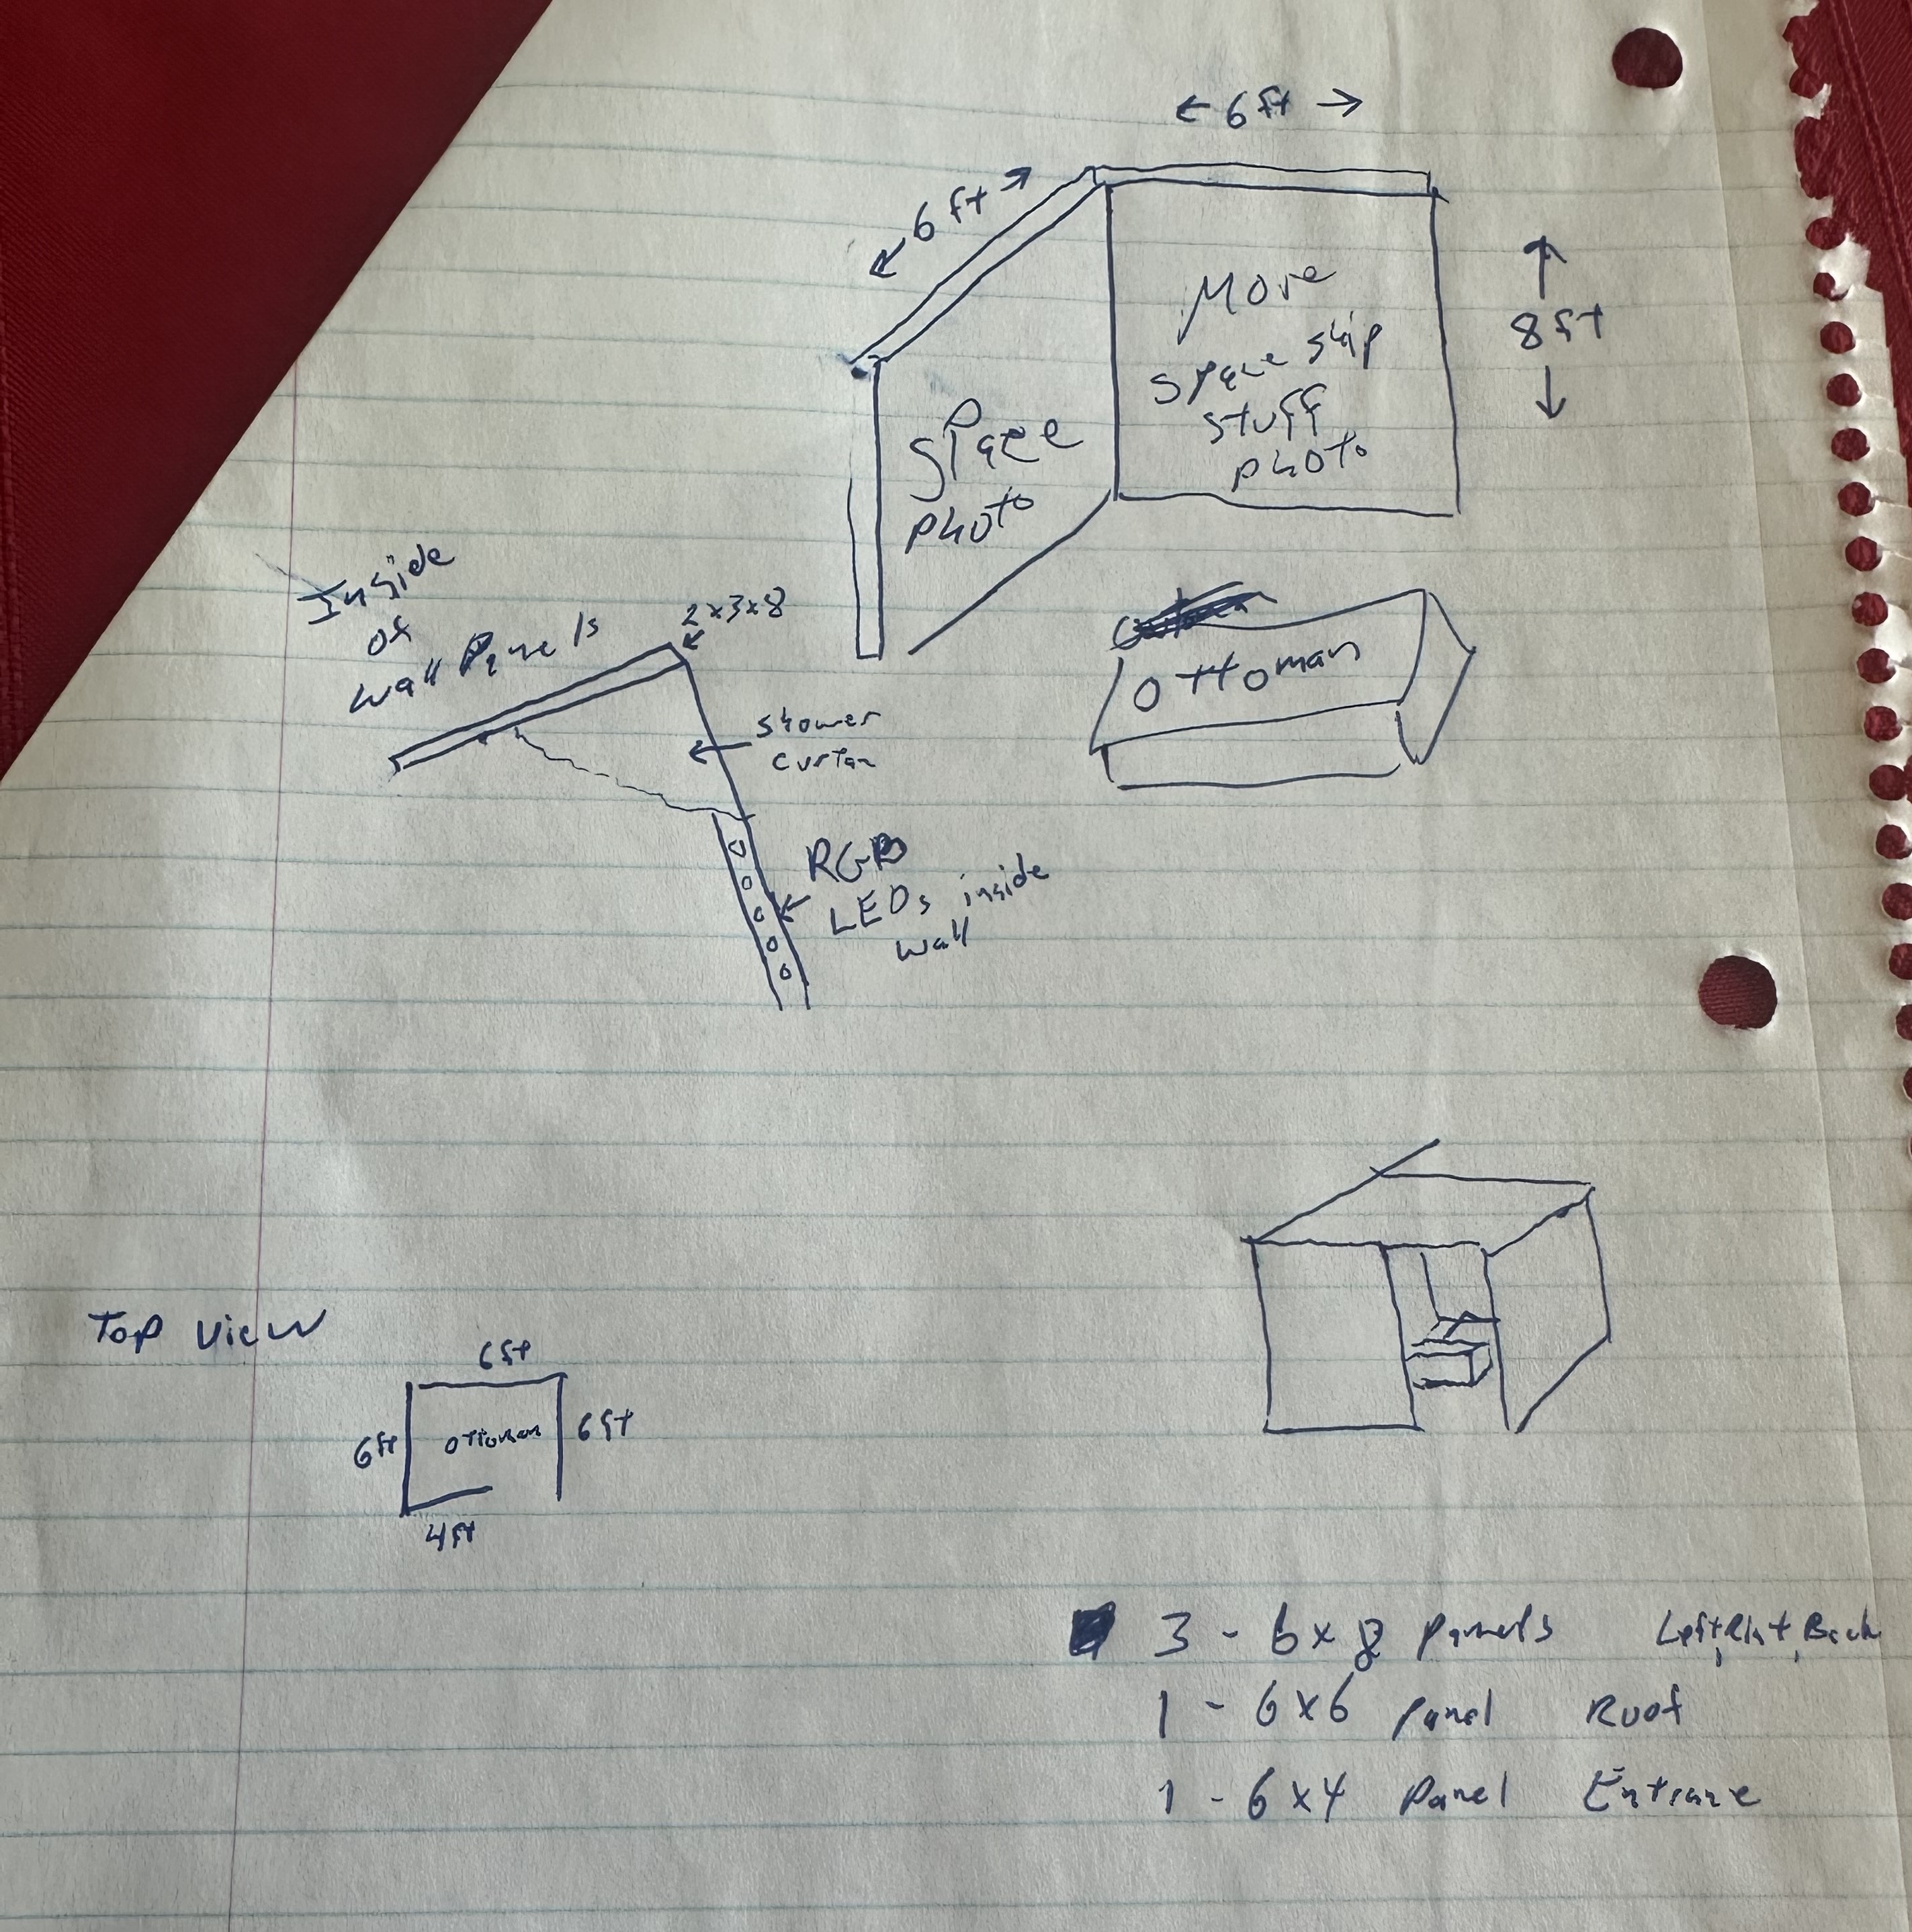 ← 6 ft →
← 6 ft →
↑
8 ft
↓
More
Space ship
stuff
photo
Space
photo
Inside
of
wall Panels
2x3x8
shower
curtan
Ottoman
RGB
LEDs inside
wall
Top view
6ft
6ft
ottoman
6ft
4ft
3 - 6x8 panels Left, Riht, Back
1 - 6x6 panel Roof
1 - 6x4 Panel Entrane